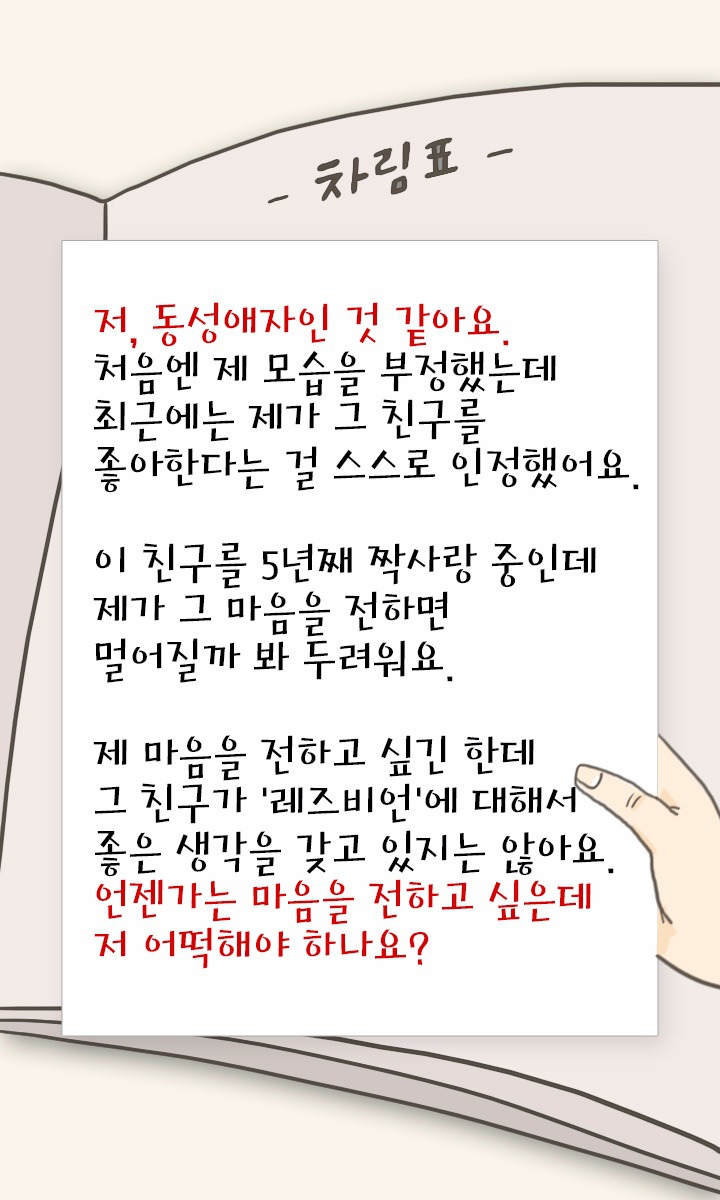 - 차림표 -
저, 동성애자인 것 같아요.
처음엔 제 모습을 부정했는데
최근에는 제가 그 친구를
좋아한다는 걸 스스로 인정했어요.
이 친구를 5년째 짝사랑 중인데
제가 그 마음을 전하면
멀어질까 봐 두려워요.
제 마음을 전하고 싶긴 한데
그 친구가 '레즈비언'에 대해서
좋은 생각을 갖고 있지는 않아요.
언젠가는 마음을 전하고 싶은데
저 어떡해야 하나요?